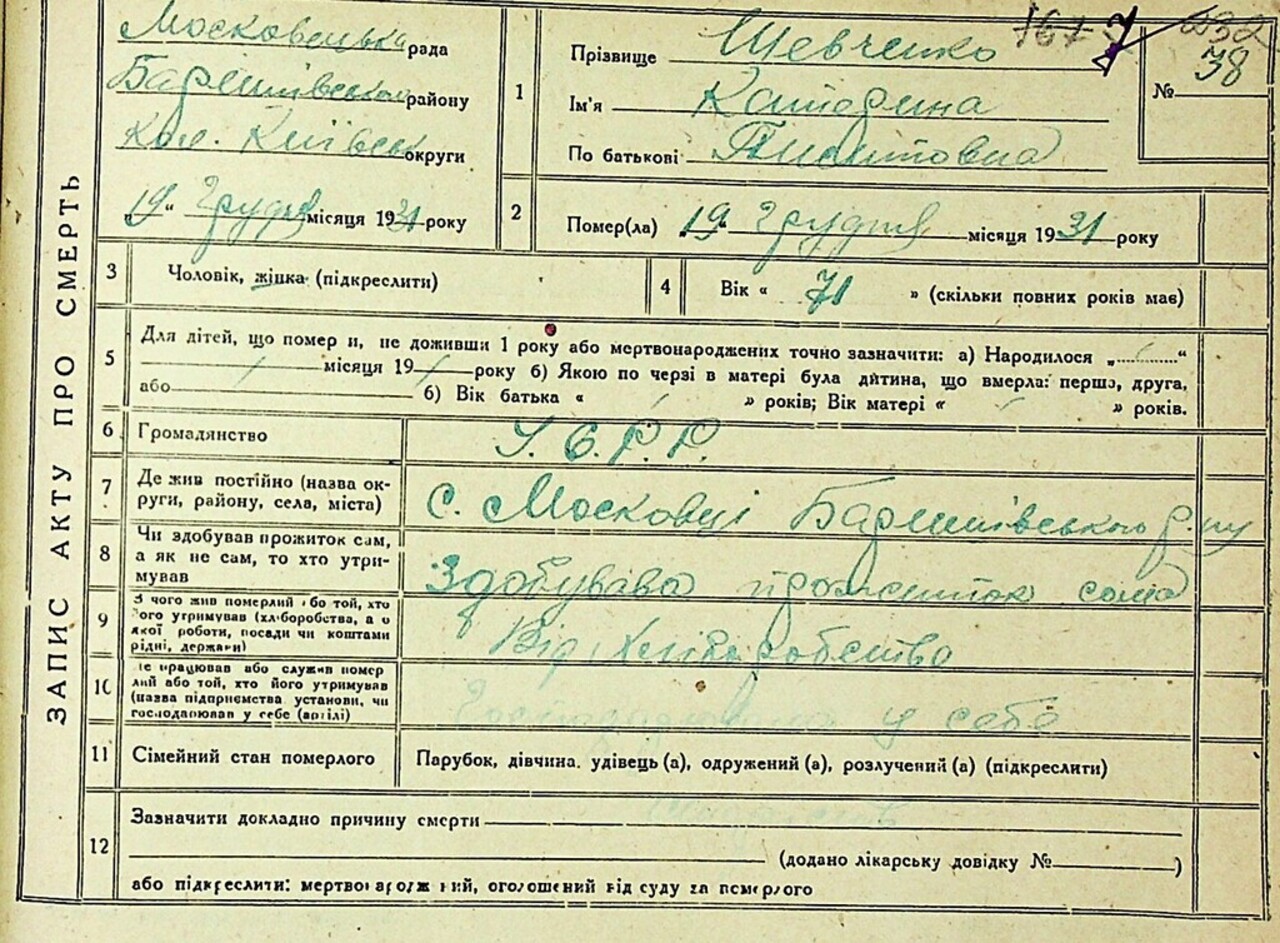 ЗАПИС АКТУ ПРО СМЕРТЬ
Московецька рада
Баришівського району
Кол. Київськ округи
„19“ Грудня місяця 1931 року
1
Прізвище Шевченко
Ім'я Катерина
По батькові
№ 38
1673
232
2
Помер(ла) „19“ Грудня місяця 1931 року
3
Чоловік, жінка (підкреслити)
4
Вік « 71 » (скільки повних років має)
5
Для дітей, що помер и, не доживши 1 року або мертвонароджених точно зазначити: а) Народилося „ “
місяця 19 року б) Якою по черзі в матері була дитина, що вмерла: перша, друга,
або б) Вік батька « » років; Вік матері « » років.
6
Громадянство
У.С.Р.Р.
7
Де жив постійно (назва ок-
руги, району, села, міста)
с. Московці Баришівського р-ну
8
Чи здобував прожиток сам,
а як не сам, то хто утри-
мував
Здобувала прожиток сама
9
З чого жив померлий або той, хто
його утримував (хліборобства, а о
якої роботи, посади чи коштами
рідні, держави)
Від Хліборобства
10
Де працював або служив помер
лий або той, хто його утримував
(назва підприємства установи, чи
господарював у себе (артілі)
Господарювала у себе
11
Сімейний стан померлого
Парубок, дівчина. удівець (а), одружений (а), розлучений (а) (підкреслити)
12
Зазначити докладно причину смерти
(додано лікарську довідку № )
або підкреслити: мертвонароджений, оголошений від суду за померлого